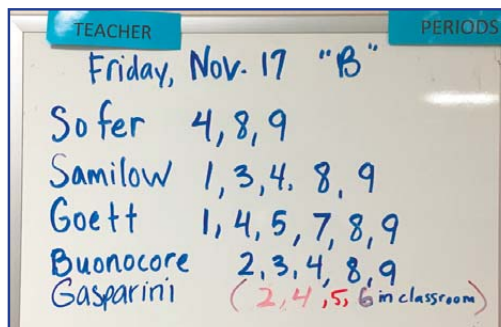 TEACHER PERIODS
Friday, Nov. 17 "B"
Sofer 4, 8, 9
Samilow 1, 3, 4. 8, 9
Goett 1, 4, 5, 7, 8, 9
Buonocore 2, 3, 4, 8, 9
Gasparini (2, 4, 5, 6 in classroom)